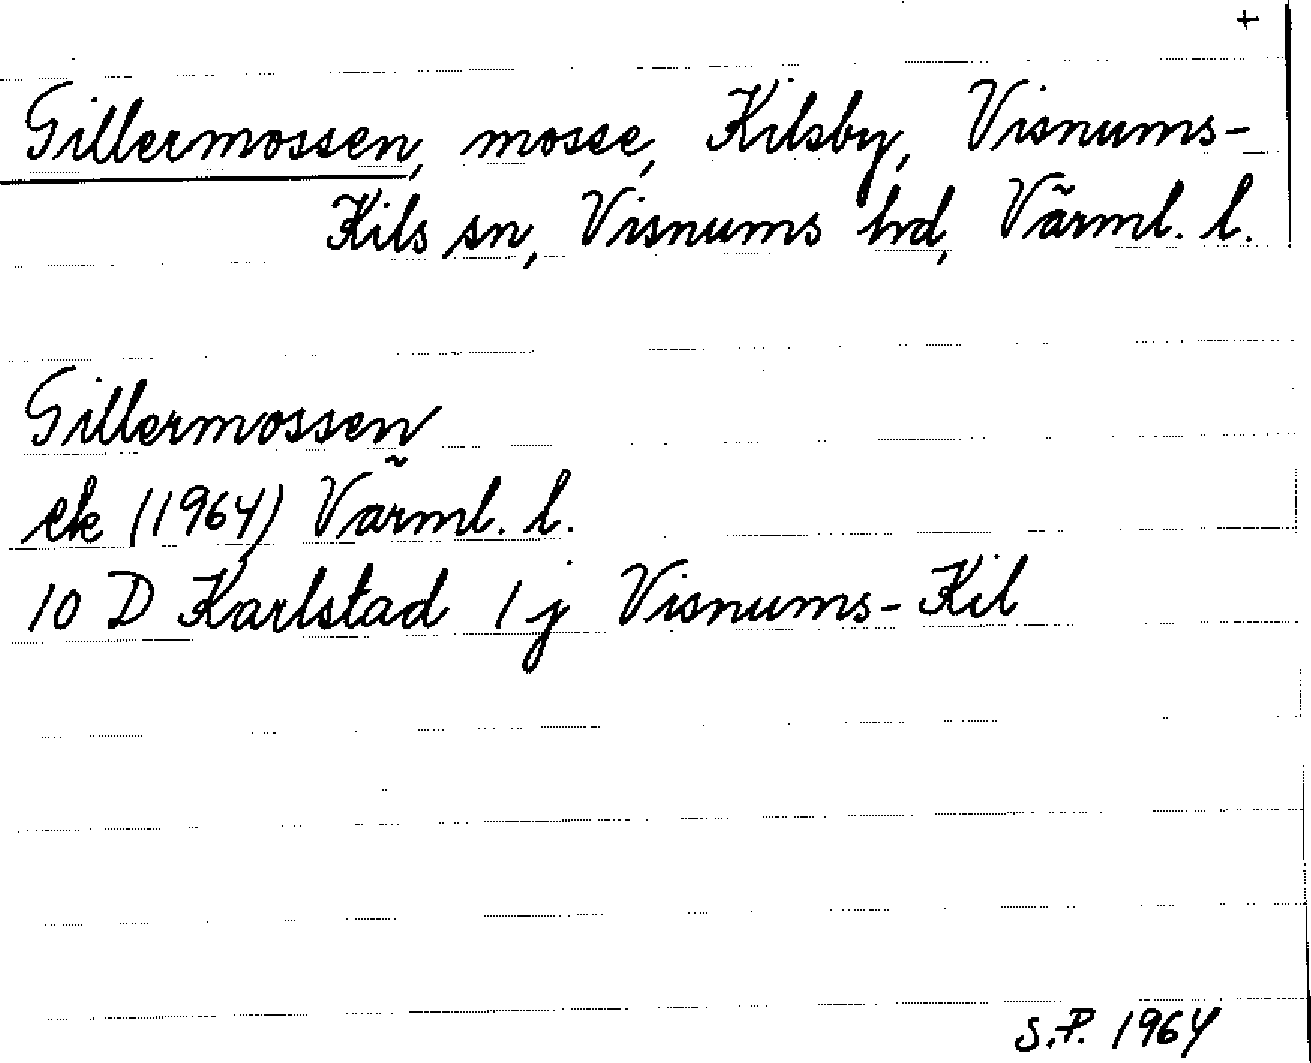 +
Gillermossen, mosse, Kilsby, Visnums-
Kils sn, Visnums hd, Värml. l.
Gillermossen
ek (1964) Värml. l.
10 D Karlstad 1 j Visnums-Kil
S.P. 1964